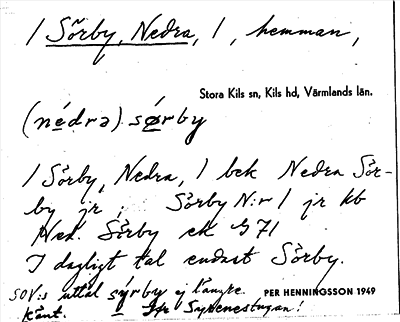 1 Sörby, Nedra, 1, hemman,
Stora Kils sn, Kils hd, Värmlands län.
(nédrə) sørby
1 Sörby, Nedra, 1 bek Nedra Sör-
by jr; Sörby N:r 1 jr kb
Ned. Sörby ek 971
I dagligt tal endast Sörby.
SOV:s uttal sýrby ej längre
PER HENNINGSSON 1949
känt. Jfr